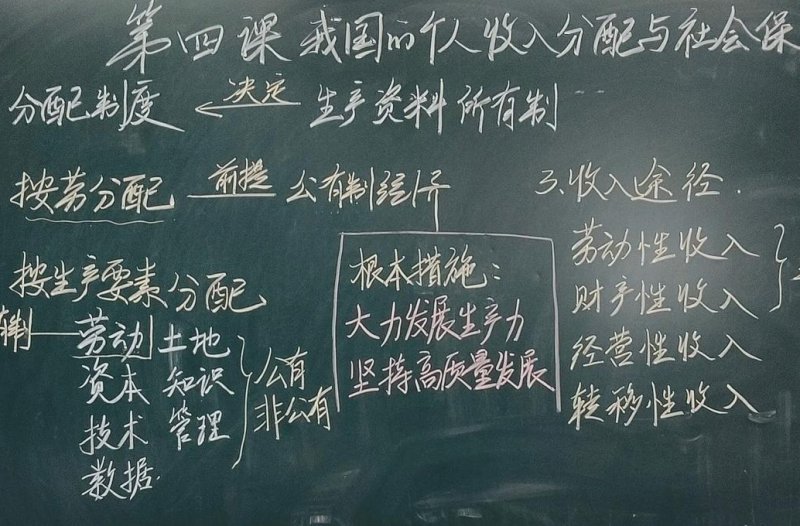 第四课 我国的个人收入分配与社会保
分配制度 ← 决定 生产资料所有制
按劳分配 前提 公有制经济
按生产要素分配
制 劳动 土地
资本 知识
技术 管理
数据
公有
非公有
根本措施：
大力发展生产力
坚持高质量发展
3.收入途径.
劳动性收入
财产性收入
经营性收入
转移性收入